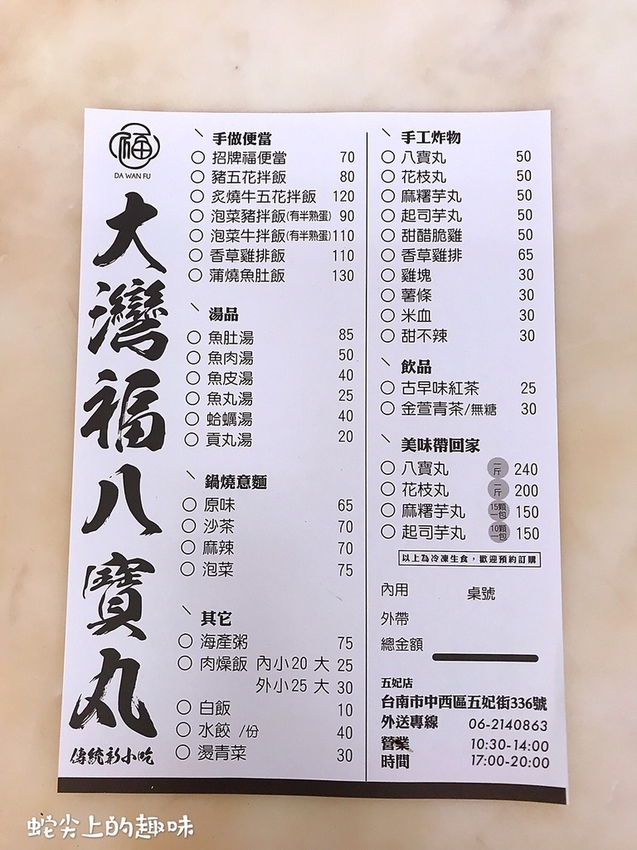 福
DA WAN FU
大灣福八寶丸
傳統新小吃
手做便當
招牌福便當 70
豬五花拌飯 80
炙燒牛五花拌飯 120
泡菜豬拌飯(有半熟蛋) 90
泡菜牛拌飯(有半熟蛋) 110
香草雞排飯 110
蒲燒魚肚飯 130
湯品
魚肚湯 85
魚肉湯 50
魚皮湯 40
魚丸湯 25
蛤蠣湯 40
貢丸湯 20
鍋燒意麵
原味 65
沙茶 70
麻辣 70
泡菜 75
其它
海產粥 75
肉燥飯 內小20 大 25
外小25 大 30
白飯 10
水餃 /份 40
燙青菜 30
手工炸物
八寶丸 50
花枝丸 50
麻糬芋丸 50
起司芋丸 50
甜醋脆雞 50
香草雞排 65
雞塊 30
薯條 30
米血 30
甜不辣 30
飲品
古早味紅茶 25
金萱青茶/無糖 30
美味帶回家
八寶丸 一斤 240
花枝丸 一斤 200
麻糬芋丸 15顆一包 150
起司芋丸 10顆一包 150
以上為冷凍生食，歡迎預約訂購
內用 桌號
外帶
總金額
五妃店
台南市中西區五妃街336號
外送專線 06-2140863
營業 10:30-14:00
時間 17:00-20:00
蛇尖上的趣味